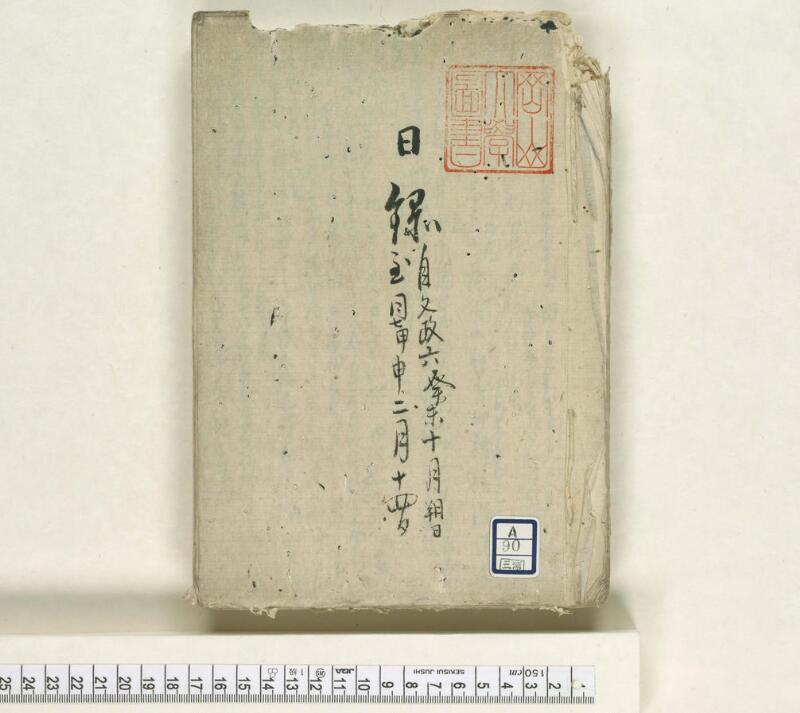 圖書
日録
自文政六癸未十月朔日
至同七甲申二月十四日
A
90
25 24 23 22 21 20 19 18 17 16 15 14 13 12 11 10 9 8 7 6 5 4 3 2
1級 JQA SEKISUI JUSHI cm 150